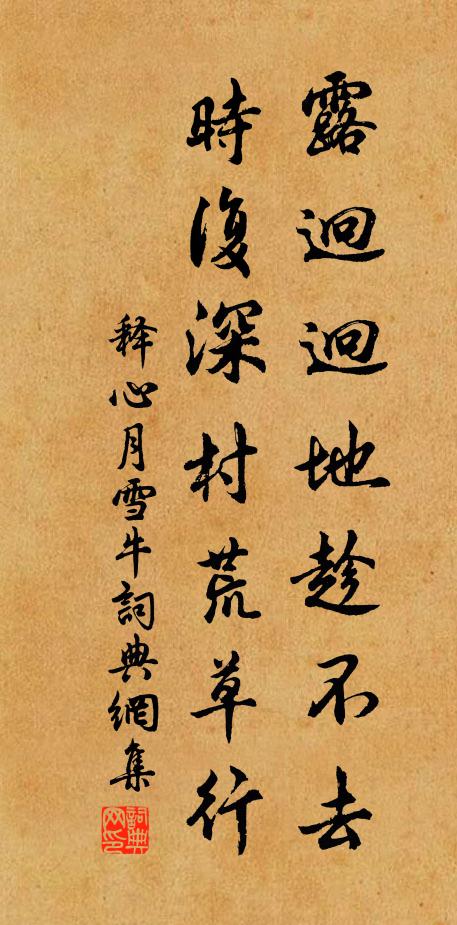 露迥迥地趁不去
時復深村荒草行
释心月雪牛詞典網集
詞典网印